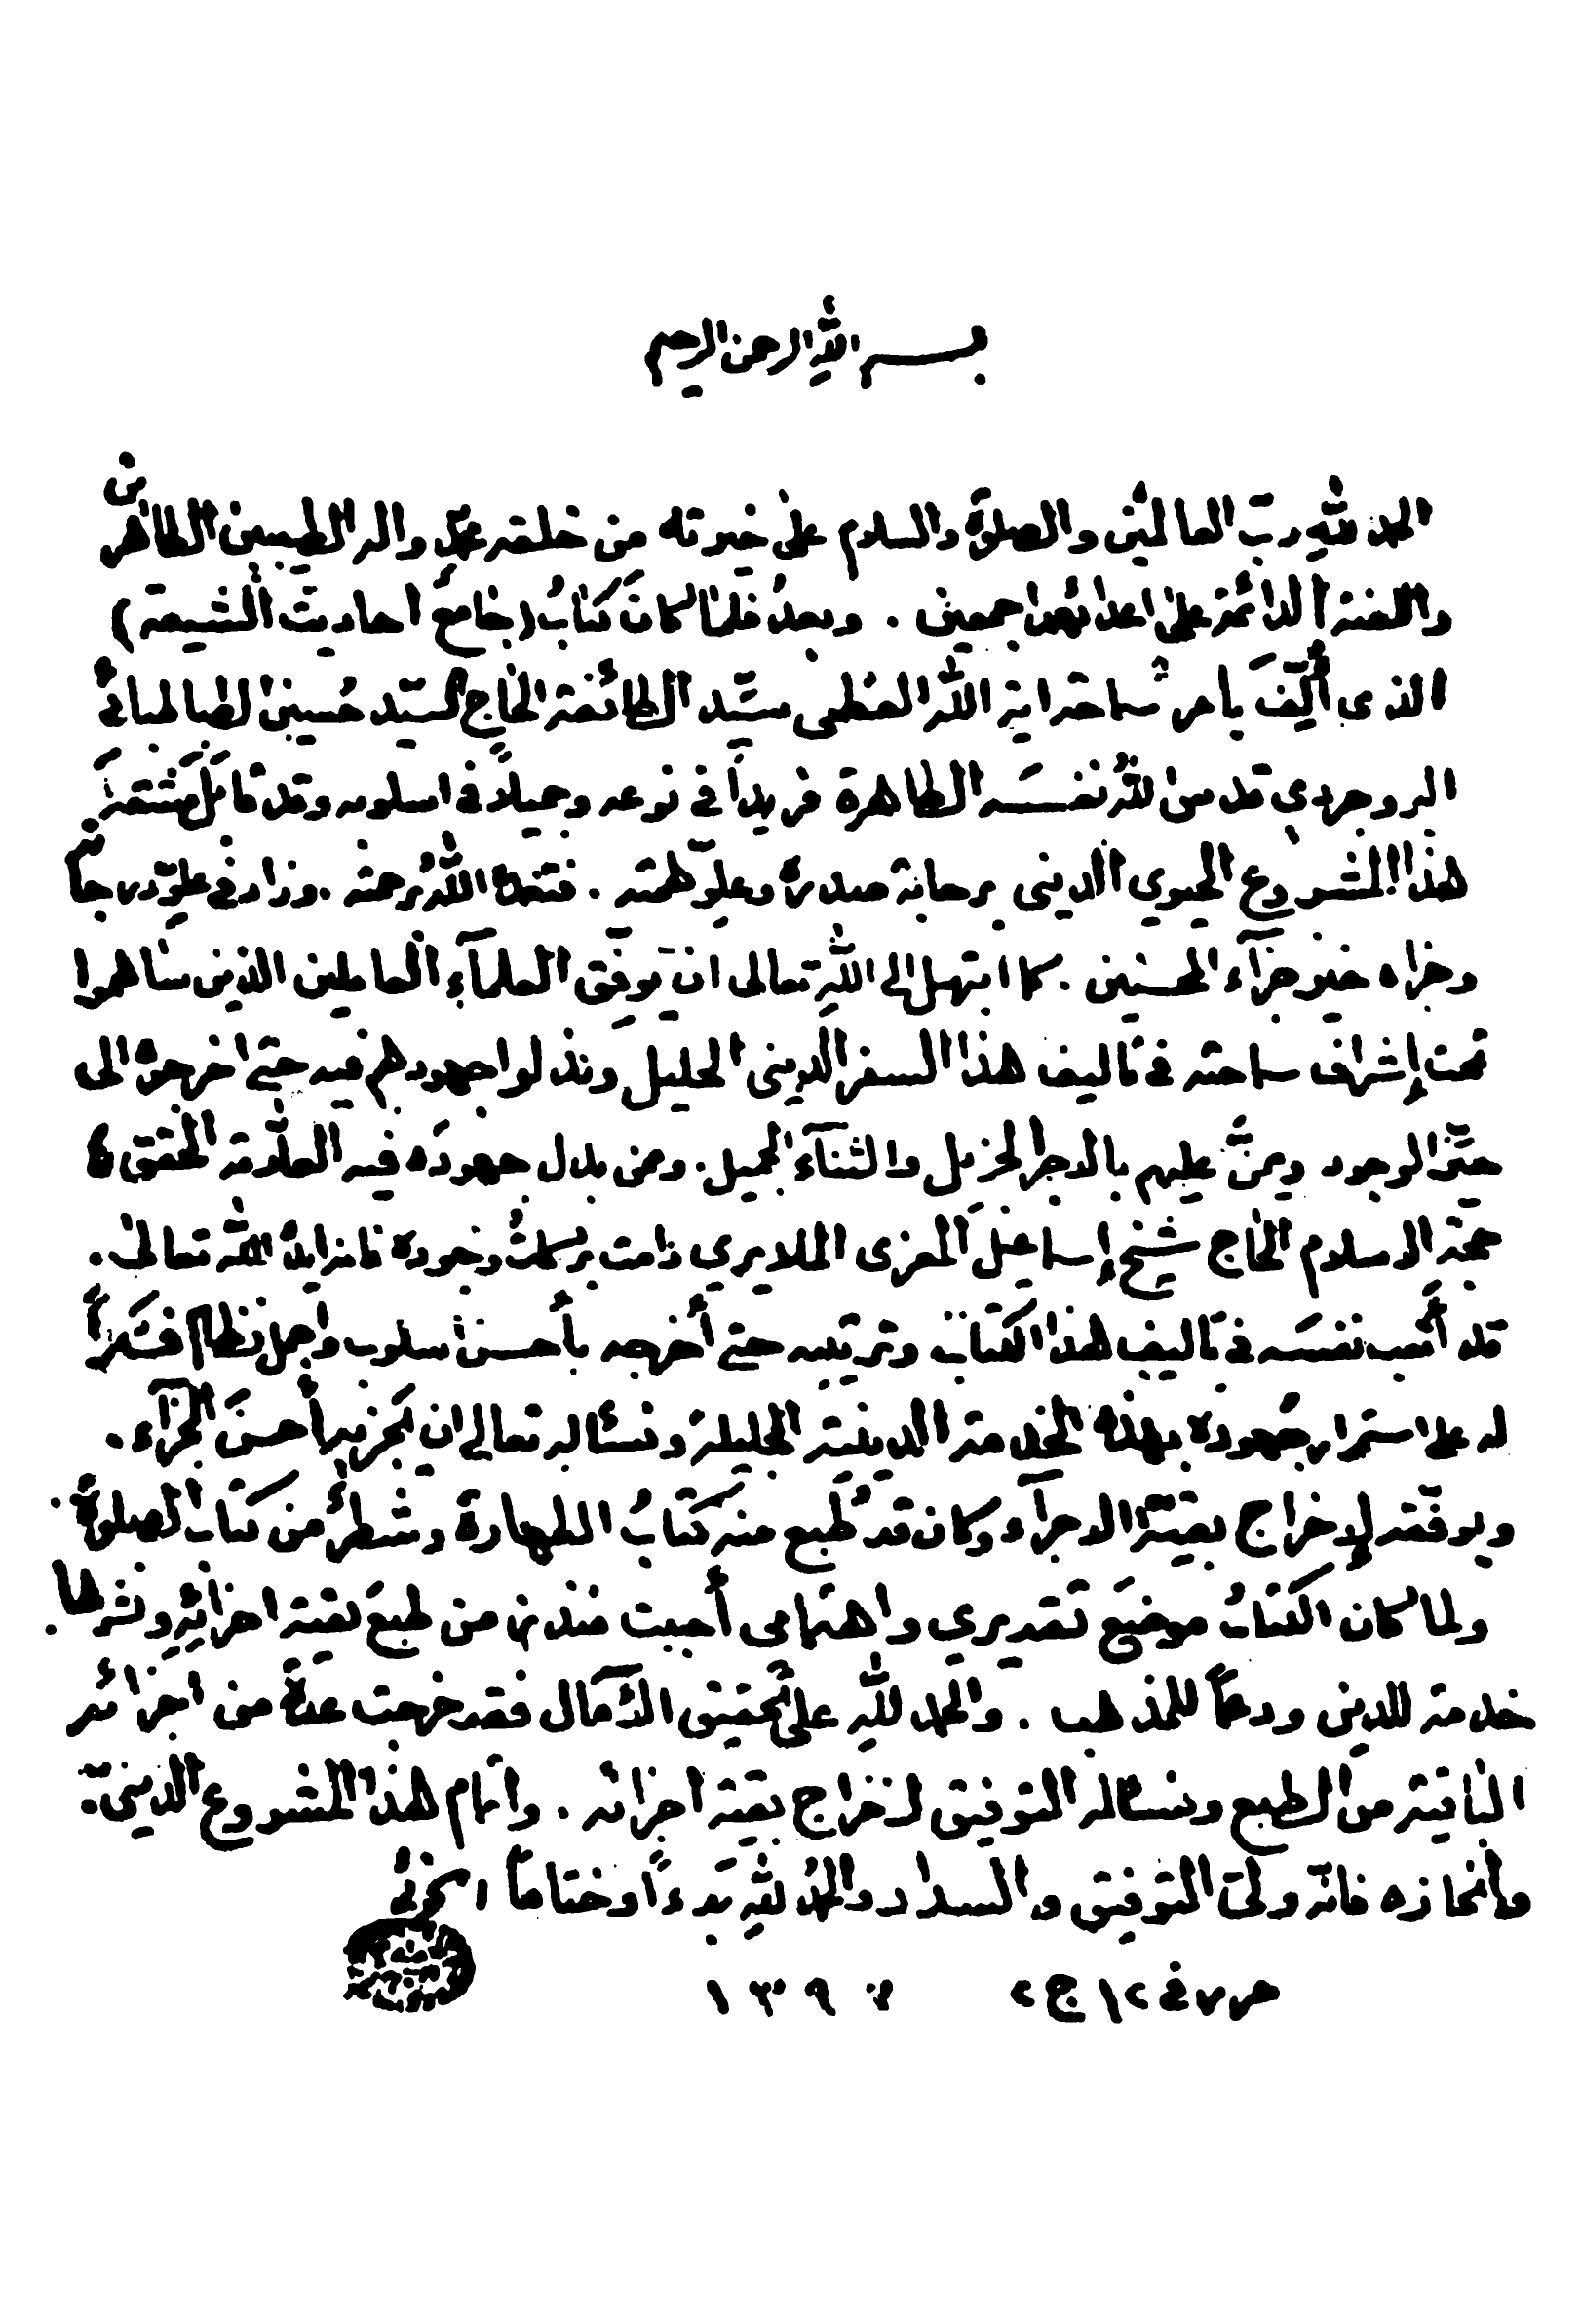 بسم الله الرحمن الرحيم
الحمد لله ربّ العالمين والصلوة والسلام على خيرته من خلقه محمّد واله الطيبين الطاهرين
واللعنة الدائمة على اعدائهم اجمعين . وبعدُ فلمّا كان كتابُ (جامعُ احاديث الشيعة)
الذى أُلِّفَ بامر سماحة اية الله العظمى سيّد الطائفة الحاج السيّد حُسين الطباطبائىُّ
البروجردي قدس اللهُ نفسَه الطاهرة فريداً فى نوعه وجميلاً فى اسلوبه وقد تحمّل مشقةَ
هذا المشروع الحيوي الدينى برحابة صدره وعلوّ همّته . فتغمده اللهُ برحمته . وزاد فى علوّ درجاته
وجزاه خير جزآء المحسنين . كما ابتهل الى اللهِ تعالى ان يوفّق العلمآءِ العاملين الذين ساهموا
تحت إشراف سماحته فى تاليف هذا السفر الدينى الجليل وبذلوا جهودهم فيه حتى اخرجوه الى
حيّز الوجود ويمنَّ عليهم بالاجر الجزيل والثنآء الجميل . وممن بذل جهودَه فيه العلّامة المحقق
حجة الاسلام الحاج شيخ إسماعيلَ المعزى الملايري دامت بركاتُ وجوده فانه ايدهُ الله تعالى .
قد أتعب نفسَه فى تاليف هذا الكتاب وترتيبه حتى أخرجه بأحسن اسلوب واجمل نظام فشكراً
له على استمرار جُهوده بهذه الخدمة الدينية الجليلة ونسئاله تعالى ان يَجزيه أحسنَ الجزآء .
ويوفّقه لإخراج بقيّة الاجزآء وكان قد طُبع منه كتابُ الطهارة وشطرٌ من كتاب الصلوة .
ولما كان الكتابُ موضعَ تقديري واهتمامى أحببت منذ زمن طبعَ بقية اجزائِه ونشرها .
خدمة للدين ودعماً للمذهب . والحمد للّهِ على تحقيق الآمال فقد خرجت عدة من اجزائه
الباقية من الطبع ونسئاله التوفيق لاخراج بقية اجزائه . واتمام هذا المشروع الدينىّ
وانجازه فانّه ولىّ التوفيق والسداد والحمدُ للّهِ بَدءاً وختاماً الخوئي
حرر فى ١٢ ج٢ ١٣٩